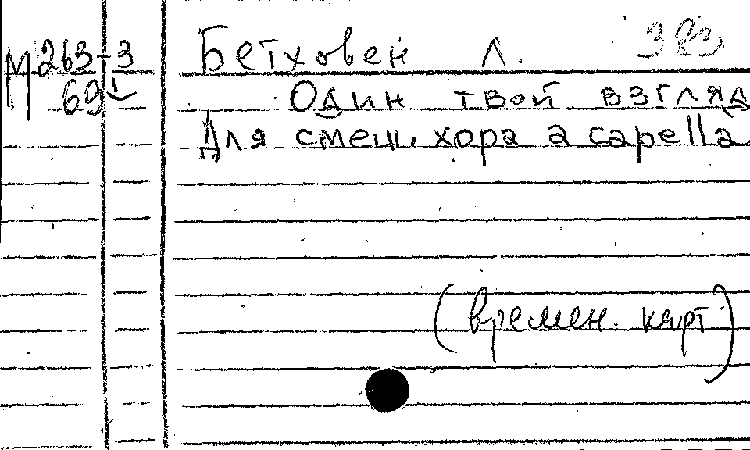 М 263-3 Бетховен Л. 3 ез
69 Один твой взгляд
Для смеш. хора a capella
(времен. карт)